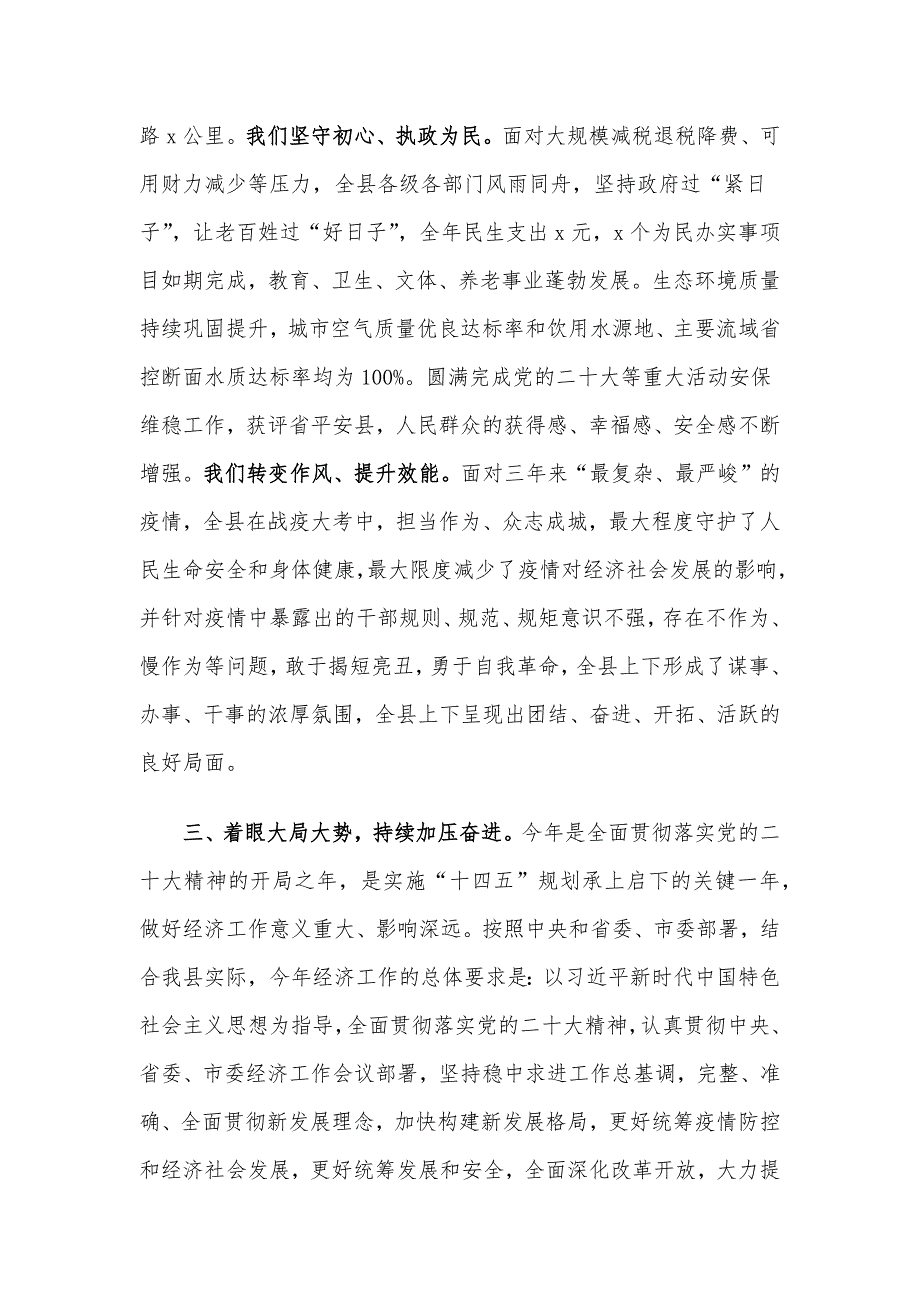 路 x 公里。我们坚守初心、执政为民。面对大规模减税退税降费、可
用财力减少等压力，全县各级各部门风雨同舟，坚持政府过“紧日
子”，让老百姓过“好日子”，全年民生支出 x 元，x 个为民办实事项
目如期完成，教育、卫生、文体、养老事业蓬勃发展。生态环境质量
持续巩固提升，城市空气质量优良达标率和饮用水源地、主要流域省
控断面水质达标率均为 100%。圆满完成党的二十大等重大活动安保
维稳工作，获评省平安县，人民群众的获得感、幸福感、安全感不断
增强。我们转变作风、提升效能。面对三年来“最复杂、最严峻”的
疫情，全县在战疫大考中，担当作为、众志成城，最大程度守护了人
民生命安全和身体健康，最大限度减少了疫情对经济社会发展的影响，
并针对疫情中暴露出的干部规则、规范、规矩意识不强，存在不作为、
慢作为等问题，敢于揭短亮丑，勇于自我革命，全县上下形成了谋事、
办事、干事的浓厚氛围，全县上下呈现出团结、奋进、开拓、活跃的
良好局面。
三、着眼大局大势，持续加压奋进。今年是全面贯彻落实党的二
十大精神的开局之年，是实施“十四五”规划承上启下的关键一年，
做好经济工作意义重大、影响深远。按照中央和省委、市委部署，结
合我县实际，今年经济工作的总体要求是：以习近平新时代中国特色
社会主义思想为指导，全面贯彻落实党的二十大精神，认真贯彻中央、
省委、市委经济工作会议部署，坚持稳中求进工作总基调，完整、准
确、全面贯彻新发展理念，加快构建新发展格局，更好统筹疫情防控
和经济社会发展，更好统筹发展和安全，全面深化改革开放，大力提